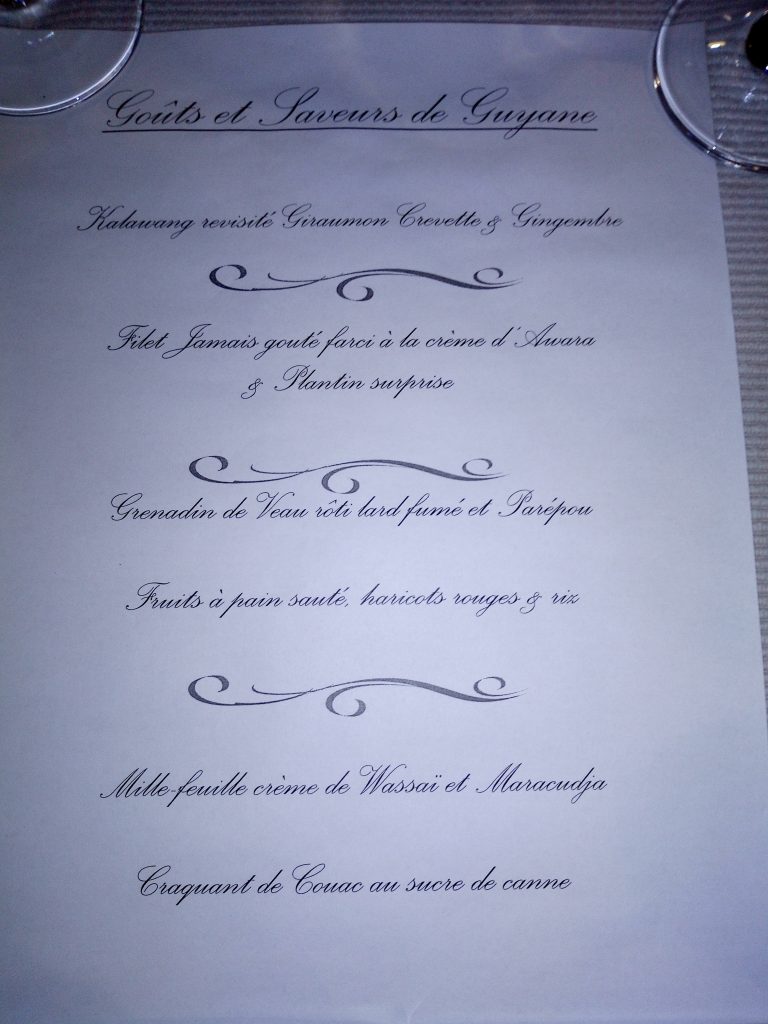 Goûts et Saveurs de Guyane
Kalawang revisité Giraumon Crevette & Gingembre
Filet Jamais gouté farci à la crème d'Awara
& Plantin surprise
Grenadin de Veau rôti lard fumé et Parépou
Fruits à pain sauté, haricots rouges & riz
Mille-feuille crème de Wassaï et Maracudja
Craquant de Couac au sucre de canne